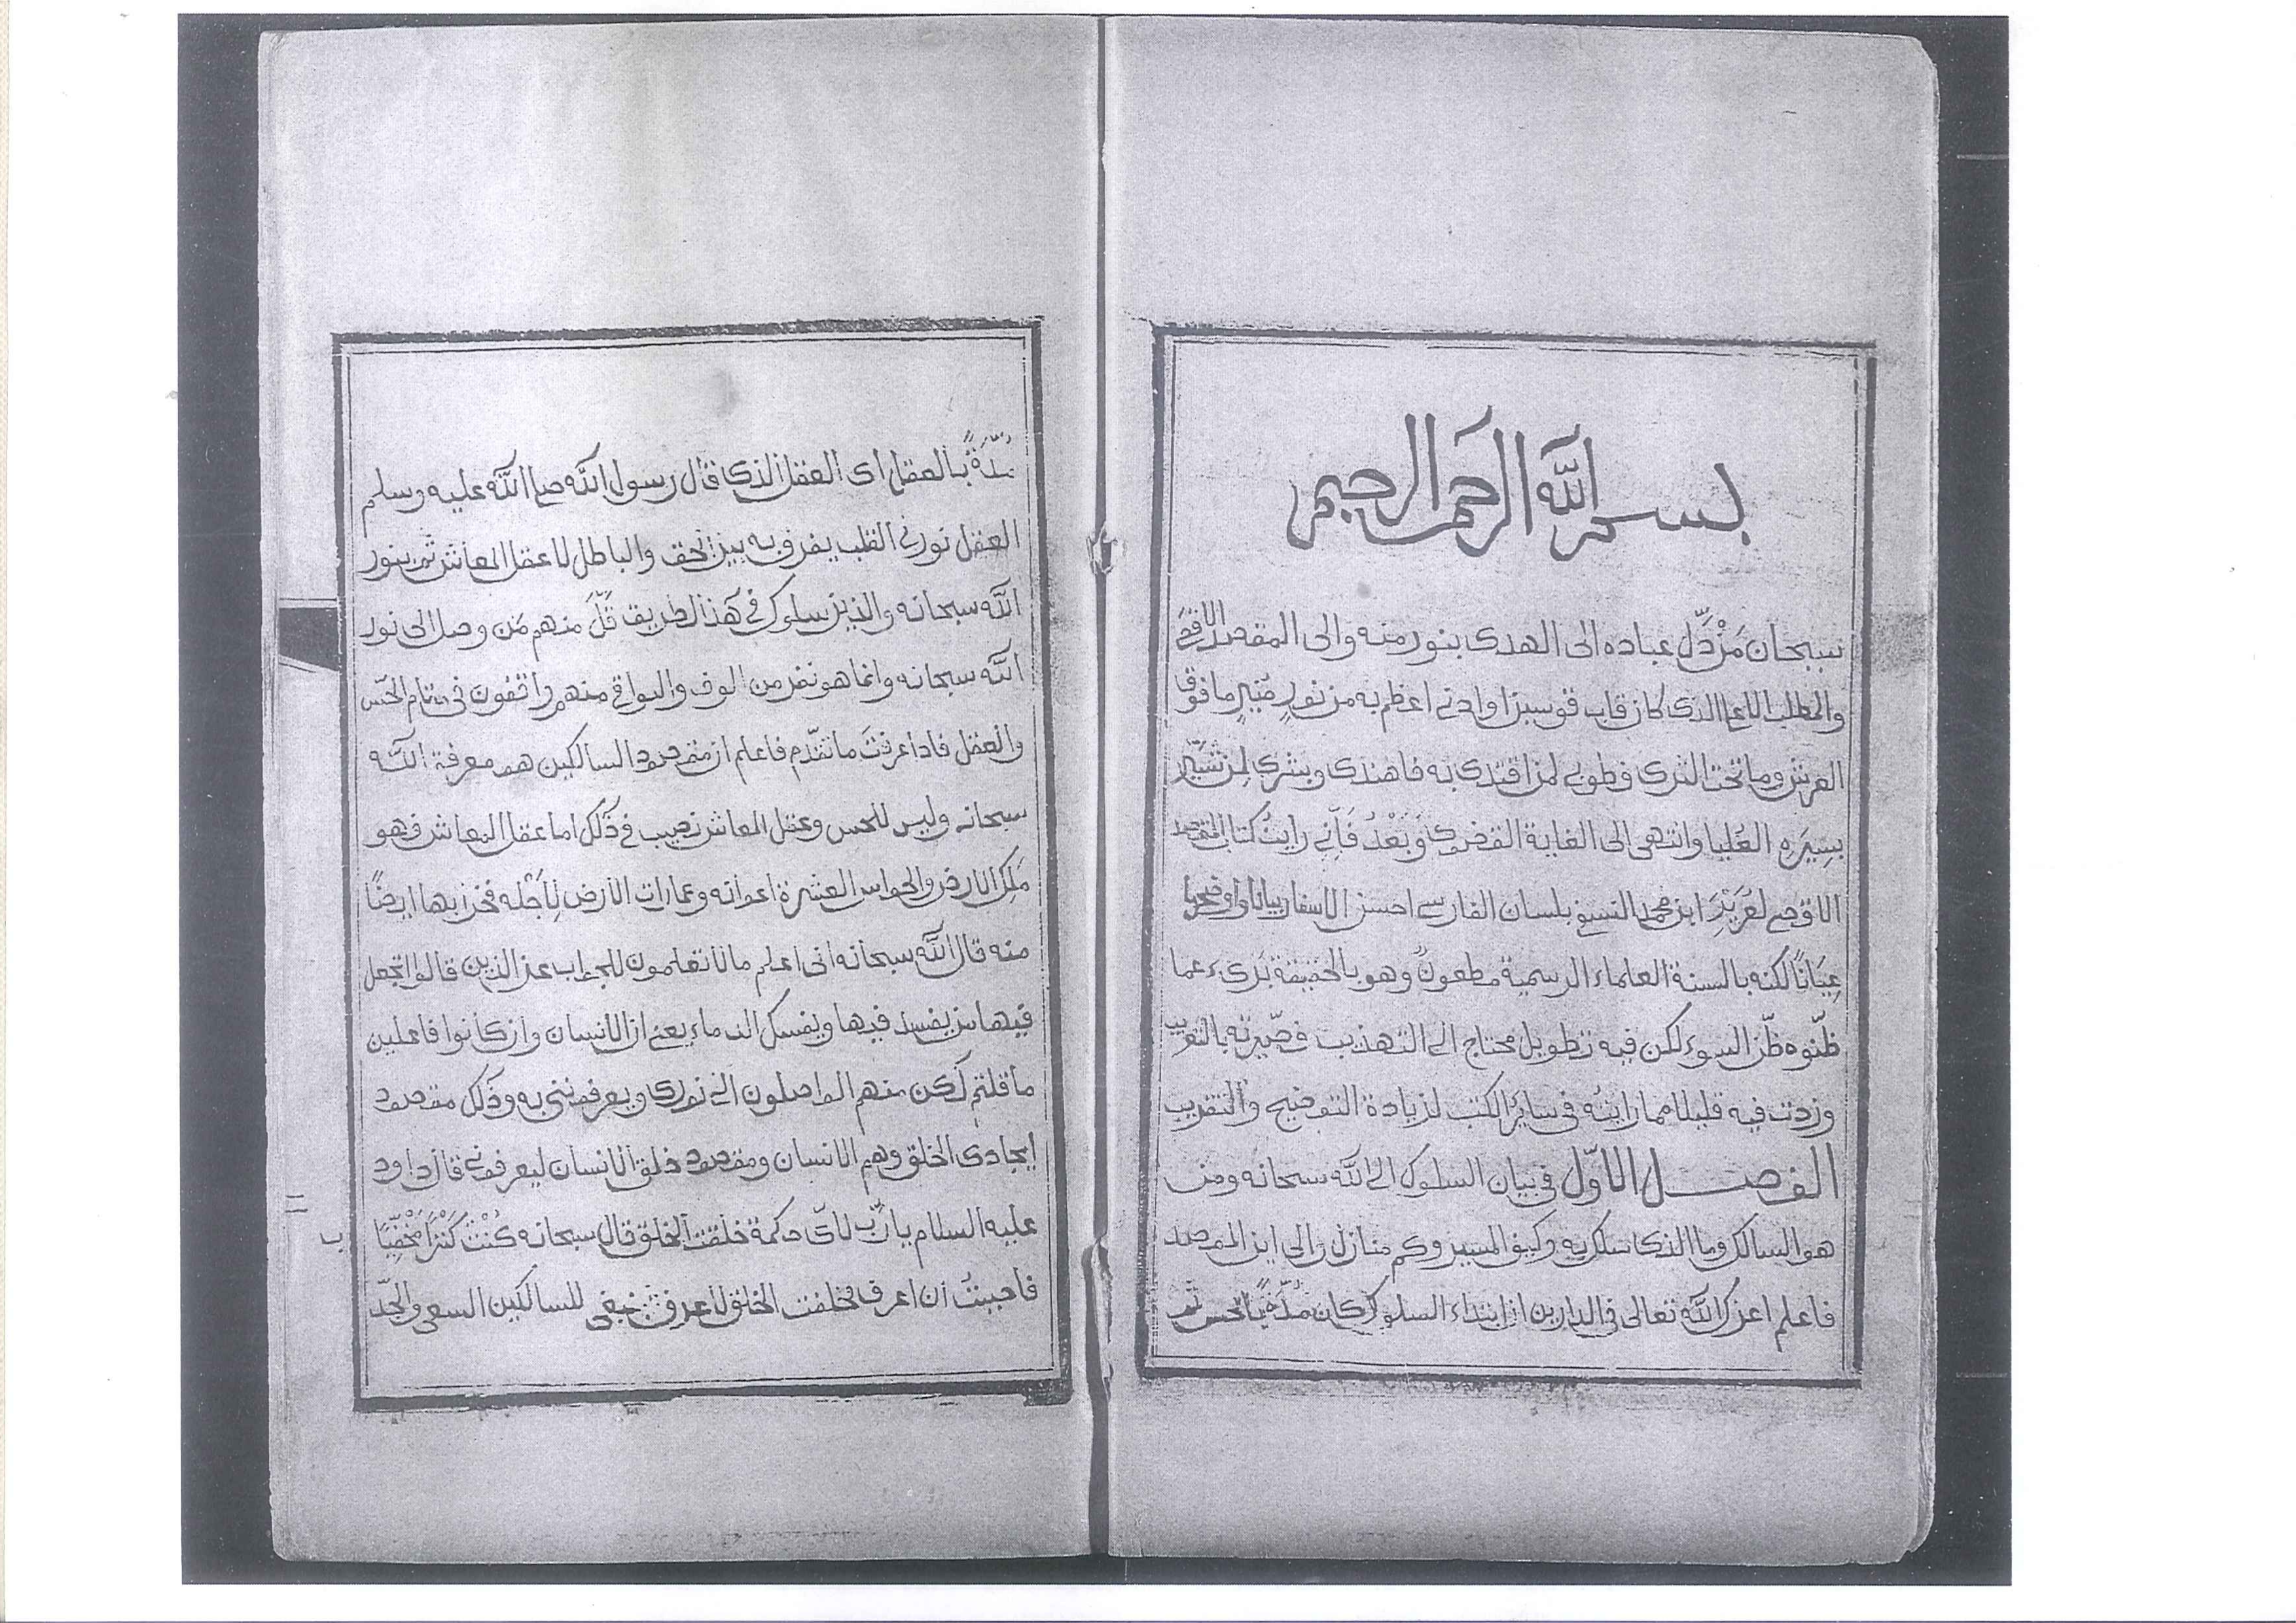 بسم الله الرحمن الرحيم
سبحان مَنْ دَلَّ عباده الى الهدى بنور منه والى المقصد الاقصى
والمطلب الاعلا الذى كان قاب قوسين او ادنى اعظم به من نورٍ مُنيرٍ ما فوق
العرش وما تحت الثرى فطوبى لمن اقتدى به فاهتدى وبشرى لمن
بسِيَرِه العُليا وانتهى الى الغاية القصوى وَبَعْدُ فَاِنّى رايتُ كتاب المقصد
الاقصى لعَزِيْزِ ابن محمد النسفى بلسان الفارسى احسن الاسفار بيانا واوضحها
عِيَانًا لكنه بالسنة العلماء الرسمية مطعونٌ وهو بالحقيقة بَرىء عما
ظنّوه ظنّ السوء لكن فيه تطويل محتاج الى التهذيب فصيّرته بالتعريب
وزدت فيه قليلا مما رايته فى ساير الكتب لزيادة التوضيح والتقريب
الفصل الاوّل فى بيان السلوك الى الله سبحانه ومن
هو السالك وما الذى سلك به وكيف المسير وكم منازل والى اين المقصد
فاعلم اعزك الله تعالى فى الدارين ان ابتداء السلوك كان مُدّةً بالحس ثم
مُدّةً بالعقل اى العقل الذى قال رسول الله صلى الله عليه وسلم
العقل نور فى القلب يفرق به بين الحق والباطل لا عقل المعاش ثم بنور
الله سبحانه والذين سلوك فى هذا الطريق قَلَّ منهم مَن وصل الى نور
الله سبحانه وانما هو نفر من الوف والبواقى منهم واقفون فى مقام الحسّ
والعقل فاذا عرفتَ ما تقدّم فاعلم ان مقصود السالكين هو معرفة الله
سبحانه وليس للحس وعقل المعاش نصيب فى ذلك اما عقل المعاش فهو
مَلِك الارض والحواس العشرة اعوانه وعمارات الارض لِاَجْله فخرابها ايضًا
منه قال الله سبحانه انى اعلم ما لا تعلمون للجواب عن الذين قالوا اتجعل
فيها من يفسد فيها ويفسك الدماء يعنى ان الانسان وان كانوا فاعلين
ما قلتم لكن منهم الواصلون الى نورى ويعرفوننى به وذلك مقصود
ايجادى الخلق وهم الانسان ومقصود خلق الانسان ليعرفونى قال داود
عليه السلام يا ربّ لاىّ حكمة خلقت الخلق قال سبحانه كُنْتُ كَنْزًا مَخْفِيًّا
فاحببتُ ان اعرف فخلقت الخلق لأعرف فينبغى للسالكين السعى والجدّ
ب